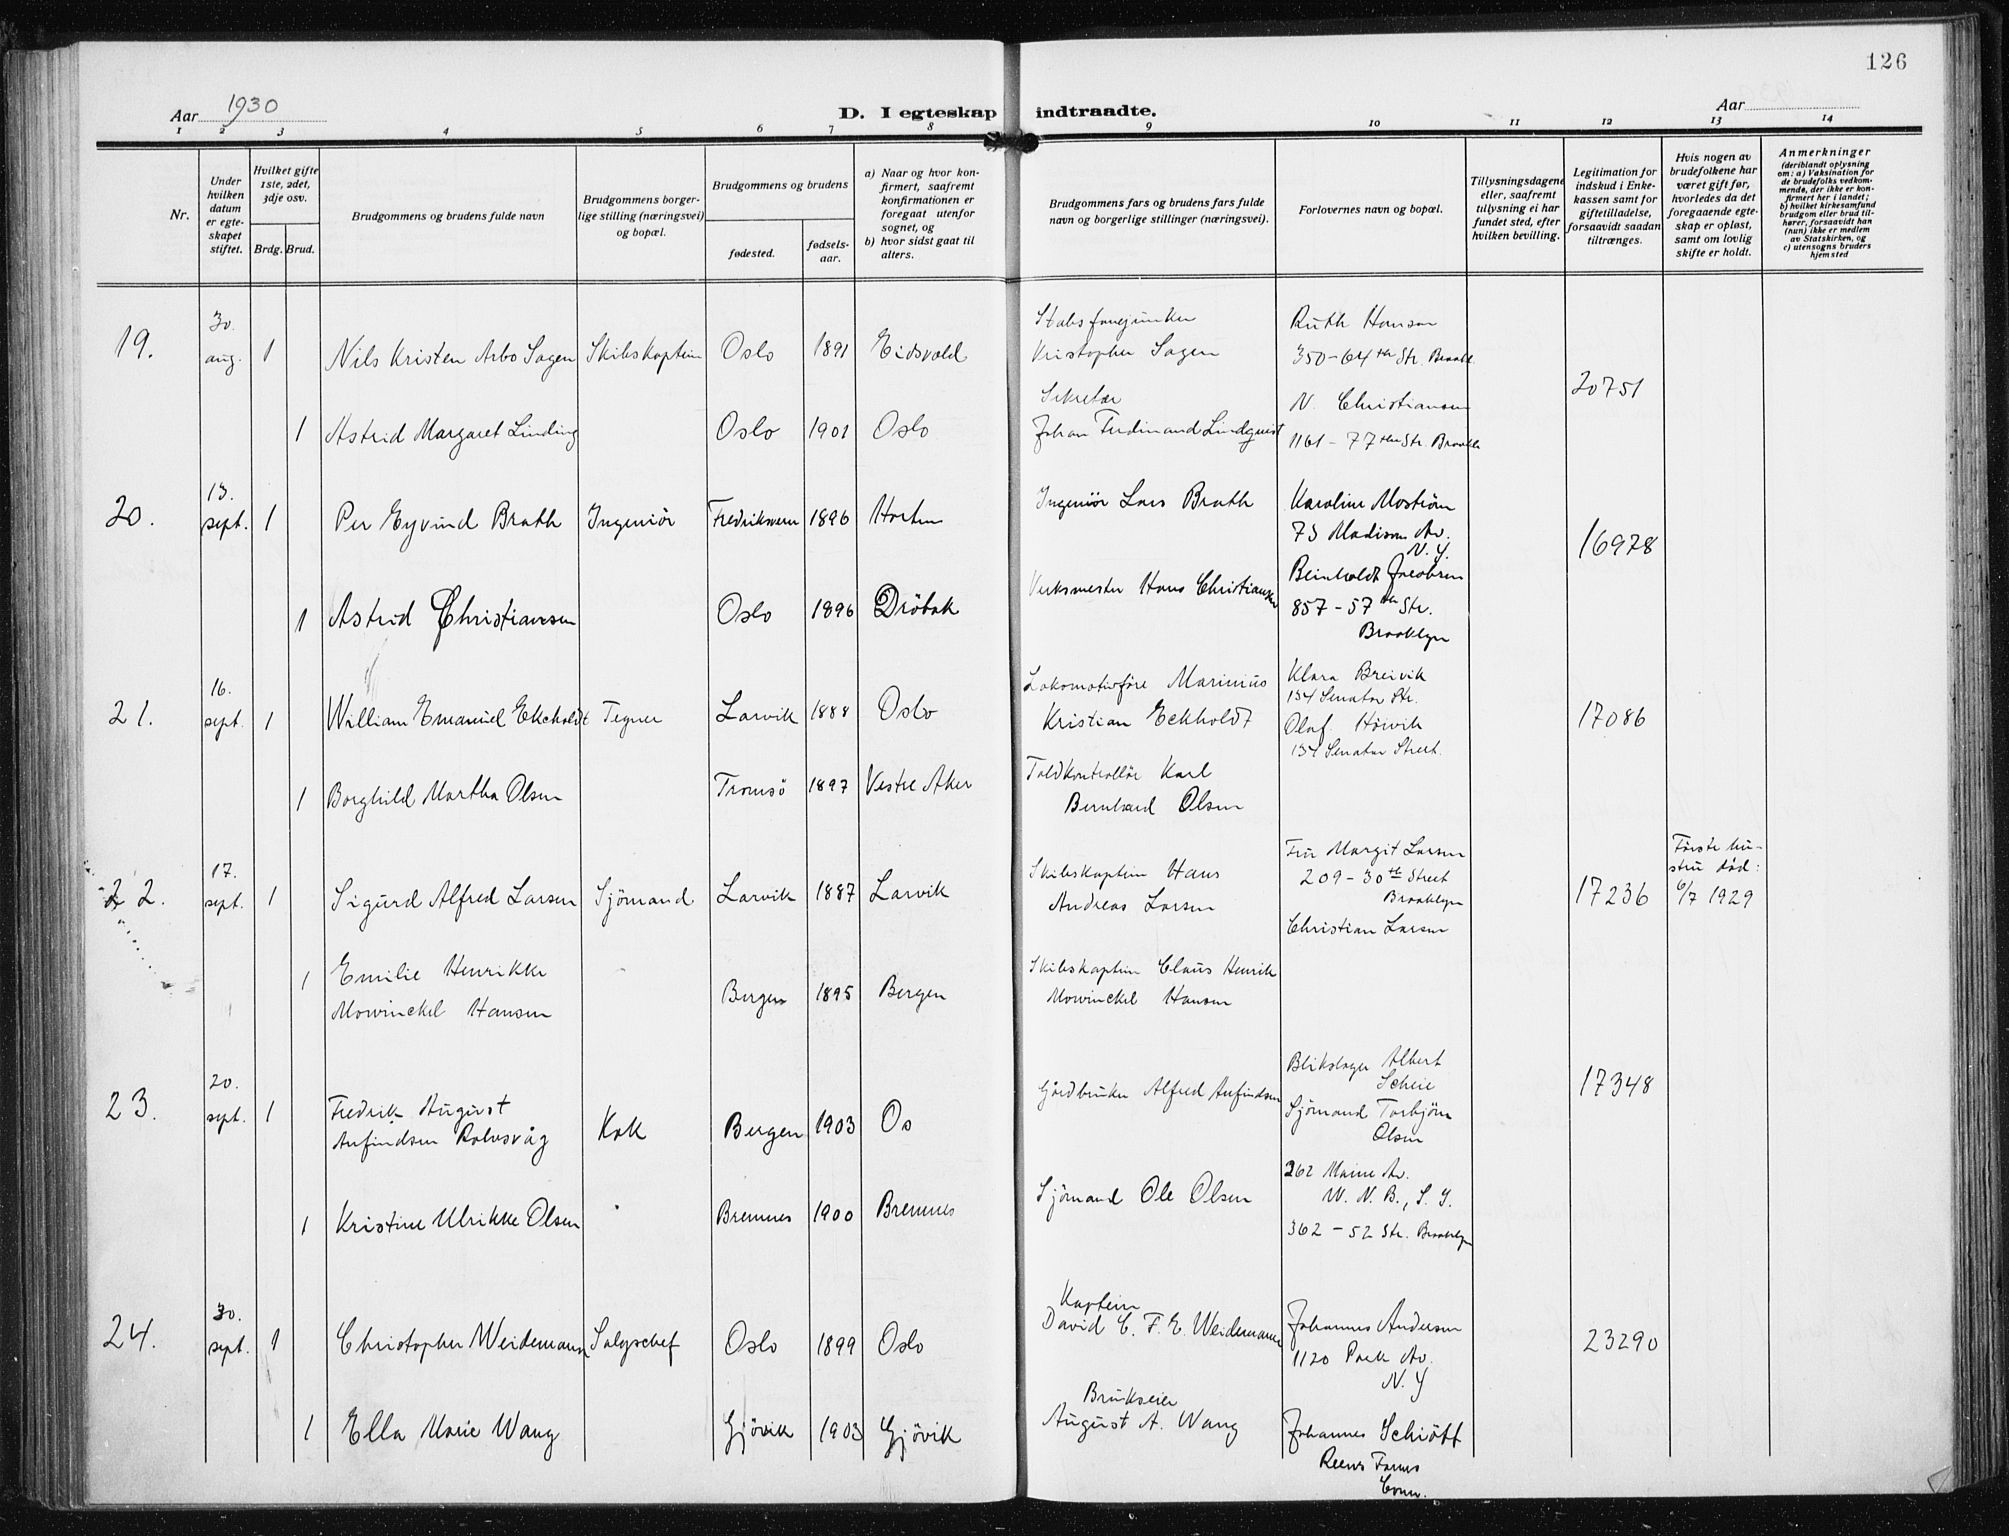 126
Aar 1930
D. I egteskap indtraadte.
Aar
1 2 3 4 5 6 7 8 9 10 11 12 13 14
Nr.
Under hvilken datum er egteskapet stiftet.
Hvilket gifte 1ste, 2det, 3dje osv.
Brdg. Brud.
Brudgommens og brudens fulde navn
Brudgommens borgerlige stilling (næringsvei) og bopæl.
Brudgommens og brudens
fødested.
fødselsaar.
a) Naar og hvor konfirmert, saafremt konfirmationen er foregaat utenfor sognet, og
b) hvor sidst gaat til alters.
Brudgommens fars og brudens fars fulde navn og borgerlige stillinger (næringsvei).
Forlovernes navn og bopæl.
Tillysningsdagene eller, saafremt tillysning ei har fundet sted, efter hvilken bevilling.
Legitimation for indskud i Enkekassen samt for giftetilladelse, forsaavidt saadan tiltrænges.
Hvis nogen av brudefolkene har været gift før, hvorledes da det foregaaende egteskap er opløst, samt om lovlig skifte er holdt.
Anmerkninger
(deriblandt oplysning om: a) Vaksination for de brudefolks vedkommende, der ikke er konfirmert her i landet; b) hvilket kirkesamfund brudgom eller brud tilhører, forsaavidt han (hun) ikke er medlem av Statskirken, og c) utensogns bruders hjemsted
19. 30. aug. 1 Nils Kristen Arbo Sagen Skibskaptein Oslo 1891 Eidsvold
Stabsfanejunker
Kristopher Sagen
Ruth Hansen
350-64th Str. Brookl.
20751
1 Astrid Margaret Linding Oslo 1901 Oslo
Sekretær
Johan Ferdinand Lindquist
N. Christiansen
1161-77th Str. Brookln
20. 13. sept. 1 Per Eyvind Brath Ingeniör Fredriksvern 1896 Horten
Ingeniör Lars Brath
Karoline Moström
75 Madison Av.
N.Y.
16978
1 Astrid Christiansen Oslo 1896 Dröbak
Verksmester Hans Christiansen
Reinholdt Jacobsen
857-57th Str.
Brooklyn
21. 16. sept. 1 William Emanuel Ekcholdt Tegner Larvik 1888 Oslo
Lokomotivföre Marinius
Kristian Eckholdt
Klara Breivik
134 Senator Str.
Olaf Höivik
134 Senator Street.
17086
1 Borghild Martha Olsen Tromsö 1897 Vestre Aker
Toldkontrollör Karl
Bernhard Olsen
22. 17. sept. 1 Sigurd Alfred Larsen Sjömand Larvik 1887 Larvik
Skibskaptein Hans
Andreas Larsen
Fru Margit Larsen
209-30th Street
Brooklyn
Christian Larsen
17236
Förste hustru död:
6/7 1929
1 Emilie Henrikke
Mowinckel Hansen
Bergen 1895 Bergen
Skibskaptein Claus Henrik
Mowinckel Hansen
23. 20. sept. 1 Fredrik August
Anfindsen Rolvsvåg
Kok Bergen 1903 Os
Gårdbruker Alfred Anfindsen
Blikslager Albert
Scheie
Sjömand Torbjörn
Olsen
17348
1 Kristine Ulrikke Olsen Bremnes 1900 Bremnes
Sjömand Ole Olsen
262 Maine Av.
W. N. B., S. Y.
362-52 Str. Brooklyn
24. 30. sept. 1 Christopher Weidemann Salgschef Oslo 1899 Oslo
Kaptein
David C. F. E. Weidemann
Johannes Andersen
1120 Park Av.
N.Y
23290
1 Ella Marie Wang Gjövik 1903 Gjövik
Brukseier
August A. Wang
Johannes Schiött
Farms
Conn.